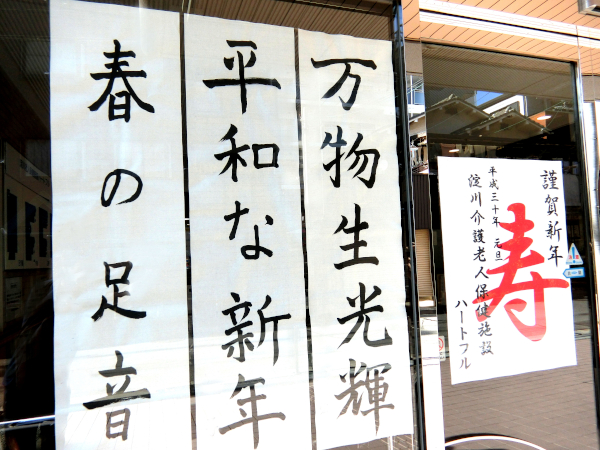 万物生光輝
平和な新年
春の足音
謹賀新年
寿
平成三十年 元旦
淀川介護老人保健施設
ハートフル